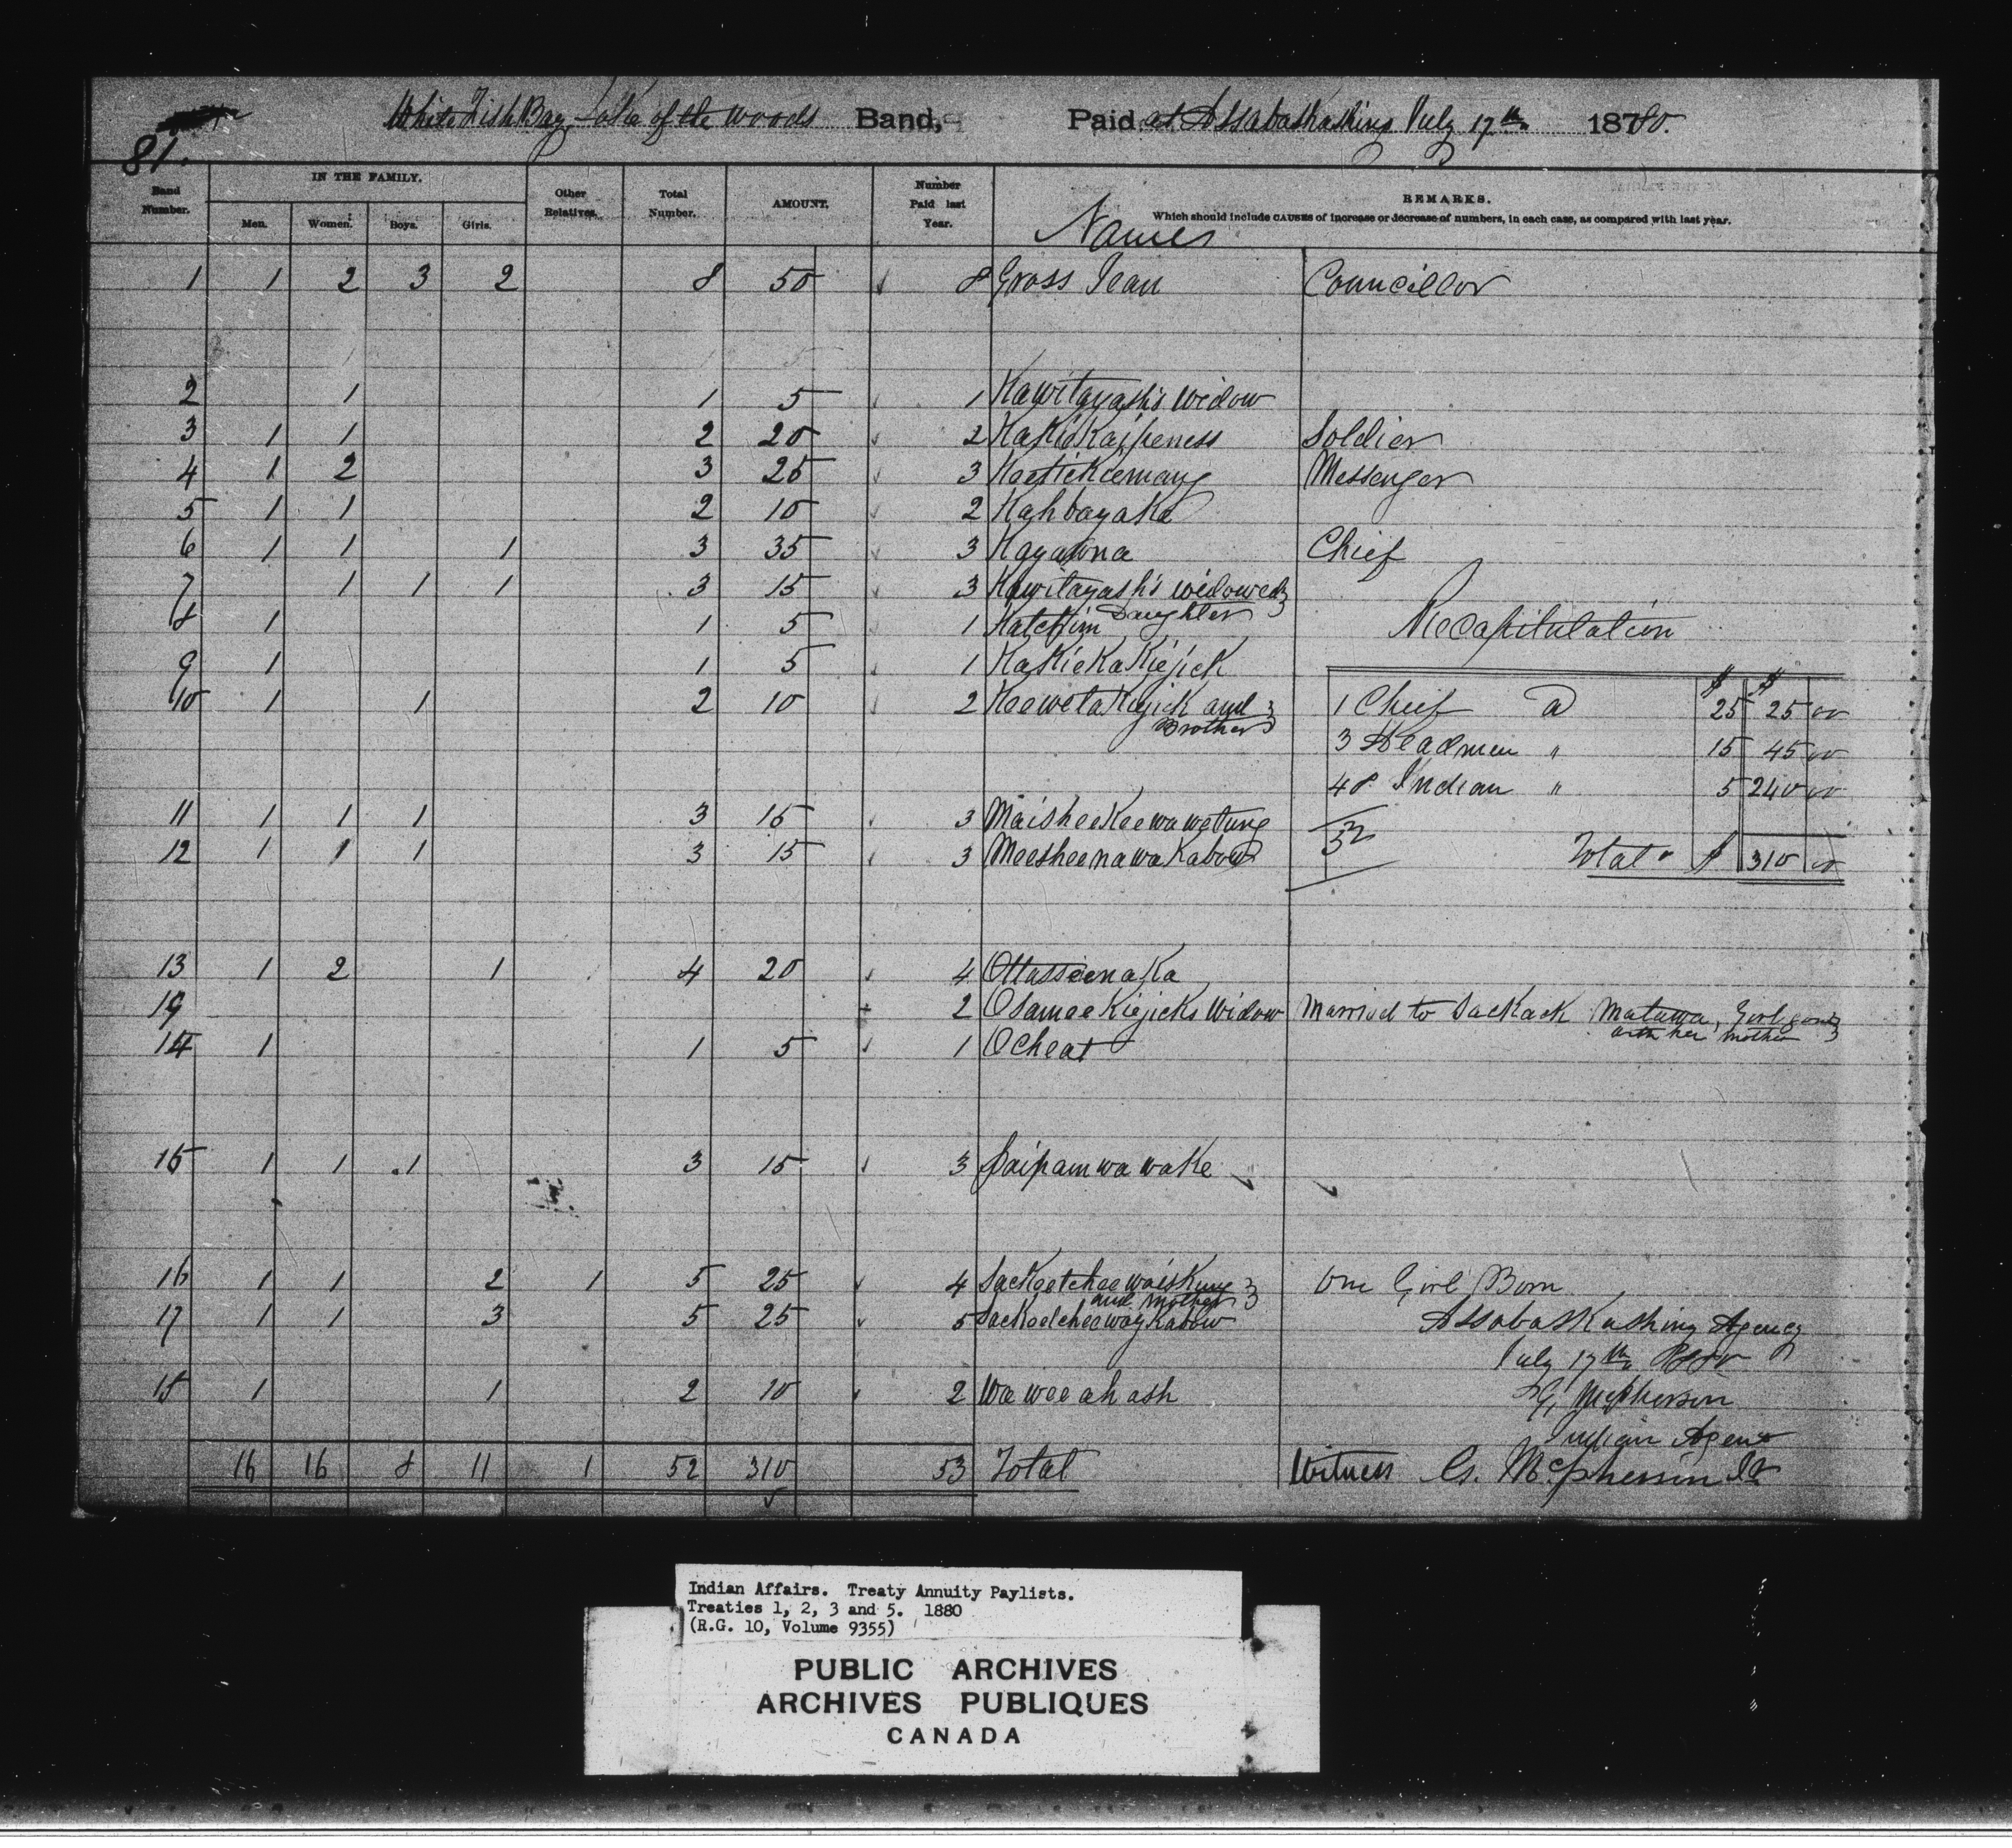 81.
White Fish Bay, Lake of the Woods Band, Paid at Assabaskashing July 17th 1880.
Band Number. IN THE FAMILY. Men. Women. Boys. Girls. Other Relatives. Total Number. AMOUNT. Number Paid last Year. Names REMARKS.
Which should include CAUSES of increase or decrease of numbers, in each case, as compared with last year.
1 1 2 3 2 8 50 8 Gross Jean Councillor
2 1 1 5 1 Kawitayash's Widow
3 1 1 2 20 2 KaKieKaipeness Soldier
4 1 2 3 25 3 Keetiekiemang Messenger
5 1 1 2 10 2 Kahbayaka
6 1 1 1 3 35 3 Kayatona Chief
7 1 1 1 3 15 3 Kawitayash's widowed Daughter
8 1 1 5 1 Katchim
9 1 1 5 1 KaKieKaKiejick
10 1 1 2 10 2 KeewetaKiejick and Brother
11 1 1 1 3 15 3 MaisheeKeewawetung
12 1 1 1 3 15 3 MeesheenawaKabow
13 1 2 1 4 20 4 OttasseenaKa
19 2 OsameeKiejicks Widow Married to Sackack Matawa, Girl gone with her mother
14 1 1 5 1 Ocheat
15 1 1 1 3 15 3 Paipamwawake
16 1 1 2 1 5 25 4 Sackeetcheewaiskung and mother One Girl Born
17 1 1 3 5 25 5 SackeetcheewayKabow
18 1 1 2 10 2 Waweeahash
16 16 8 11 1 52 310 53 Total
Recapitulation
$ $
1 Chief a 25 25 00
3 Headmen " 15 45 00
48 Indian " 5 240 00
52 Total " $ 310 00
Assabaskashing Agency
July 17th 1880
G. McPherson
Indian Agent
Witness G. McPherson Jr
Indian Affairs. Treaty Annuity Paylists.
Treaties 1, 2, 3 and 5. 1880
(R.G. 10, Volume 9355)
PUBLIC ARCHIVES
ARCHIVES PUBLIQUES
CANADA